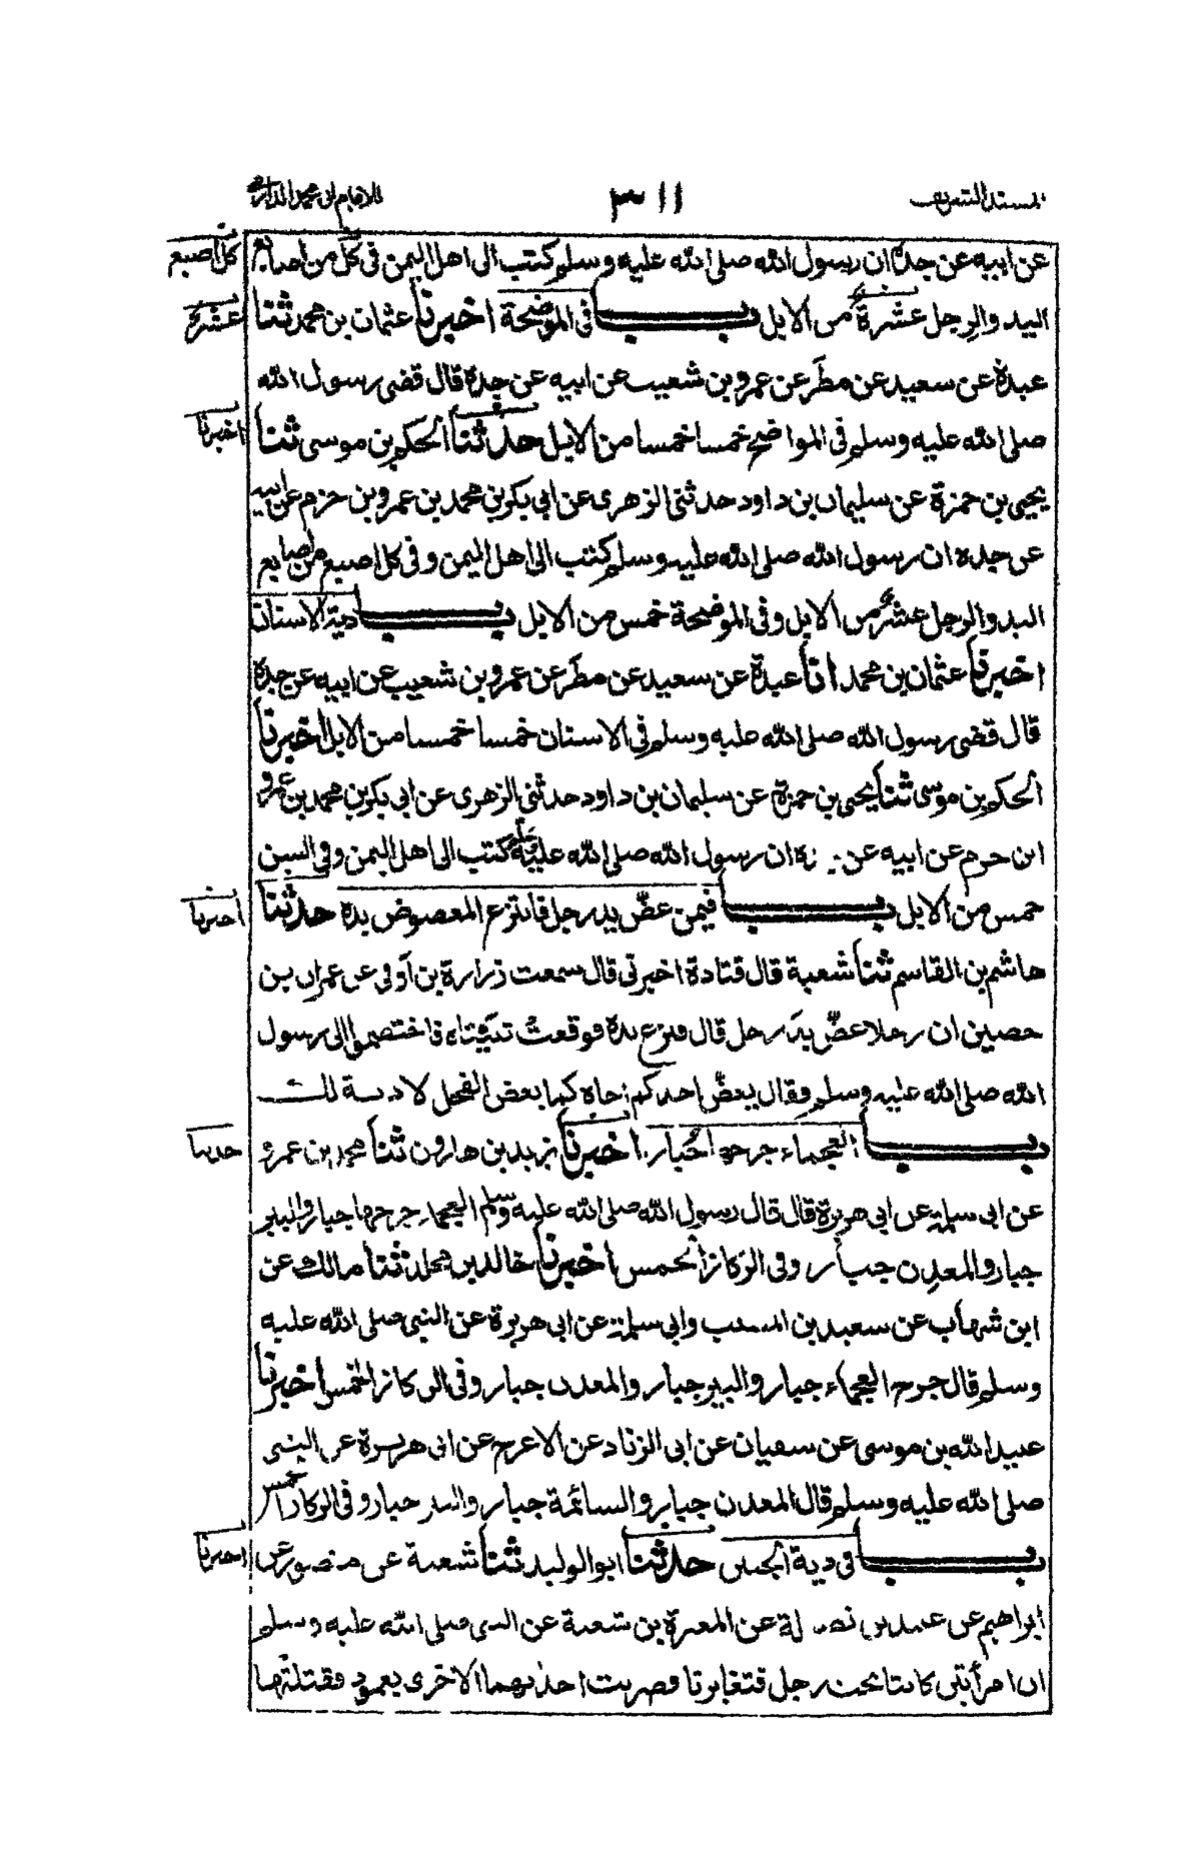 المسند الشريف
٣١١
للامام ابي محمد الدارمي
عن ابيه عن جده ان رسول الله صلى الله عليه وسلم كتب الى اهل اليمن فى كل من اصابع
كل اصبع
اليد والرجل عشرة من الابل باب فى الموضحة اخبرنا عثمان بن محمد ثنا
عشرة
عبدة عن سعيد عن مطر عن عمرو بن شعيب عن ابيه عن جده قال قضى رسول الله
صلى الله عليه وسلم فى المواضح خمسا خمسا من الابل حدثنا الحكم بن موسى ثنا
اخبرنا
يحيى بن حمزة عن سليمان بن داود حدثنى الزهرى عن ابي بكر بن محمد بن عمرو بن حزم عن ابيه
عن جده ان رسول الله صلى الله عليه وسلم كتب الى اهل اليمن وفى كل اصبع من اصابع
اليد والرجل عشر من الابل وفى الموضحة خمس من الابل باب دية الاسنان
اخبرنا عثمان بن محمد انا عبدة عن سعيد عن مطر عن عمرو بن شعيب عن ابيه عن جده
قال قضى رسول الله صلى الله عليه وسلم فى الاسنان خمسا خمسا من الابل اخبرنا
الحكم بن موسى ثنا يحيى بن حمزة عن سليمان بن داود حدثنى الزهرى عن ابي بكر بن محمد بن عمرو
ابن حزم عن ابيه عن ان رسول الله صلى الله عليه وسلم كتب الى اهل اليمن وفى السن
خمس من الابل باب فيمن عضّ يد رجل فانتزع المعضوض يده حدثنا
اخبرنا
هاشم بن القاسم ثنا شعبة قال قتادة اخبرنى قال سمعت زرارة بن أوفى عن عمران بن
حصين ان رجلا عضّ يد رجل قال فنزع يده فوقعت ثنيتاه فاختصموا الى رسول
الله صلى الله عليه وسلم فقال يعضّ احدكم اخاه كما يعض الفحل لا دية لك
باب العجماء جرحها جبار اخبرنا يزيد بن هارون ثنا محمد بن عمرو
حدثنا
عن ابى سلمة عن ابى هريرة قال قال رسول الله صلى الله عليه وسلم العجماء جرحها جبار والبير
جبار والمعدن جبار وفى الركاز الخمس اخبرنا خالد بن مخلد ثنا مالك عن
ابن شهاب عن سعيد بن المسيب وابى سلمة عن ابى هريرة عن النبى صلى الله عليه
وسلم قال جرح العجماء جبار والبير جبار والمعدن جبار وفى الركاز الخمس اخبرنا
عبيد الله بن موسى عن سفيان عن ابى الزناد عن الاعرج عن ابى هريرة عن النبى
صلى الله عليه وسلم قال المعدن جبار والسائمة جبار والبير جبار وفى الركاز الخمس
باب فى دية الجنين حدثنا ابو الوليد ثنا شعبة عن منصور عن
اخبرنا
ابراهيم عن عبيد بن عن المغيرة بن شعبة عن النبى صلى الله عليه وسلم
ان امرأتين كانتا تحت رجل فتغايرتا فضربت احدٰيهما الاخرى بعمود فقتلتها